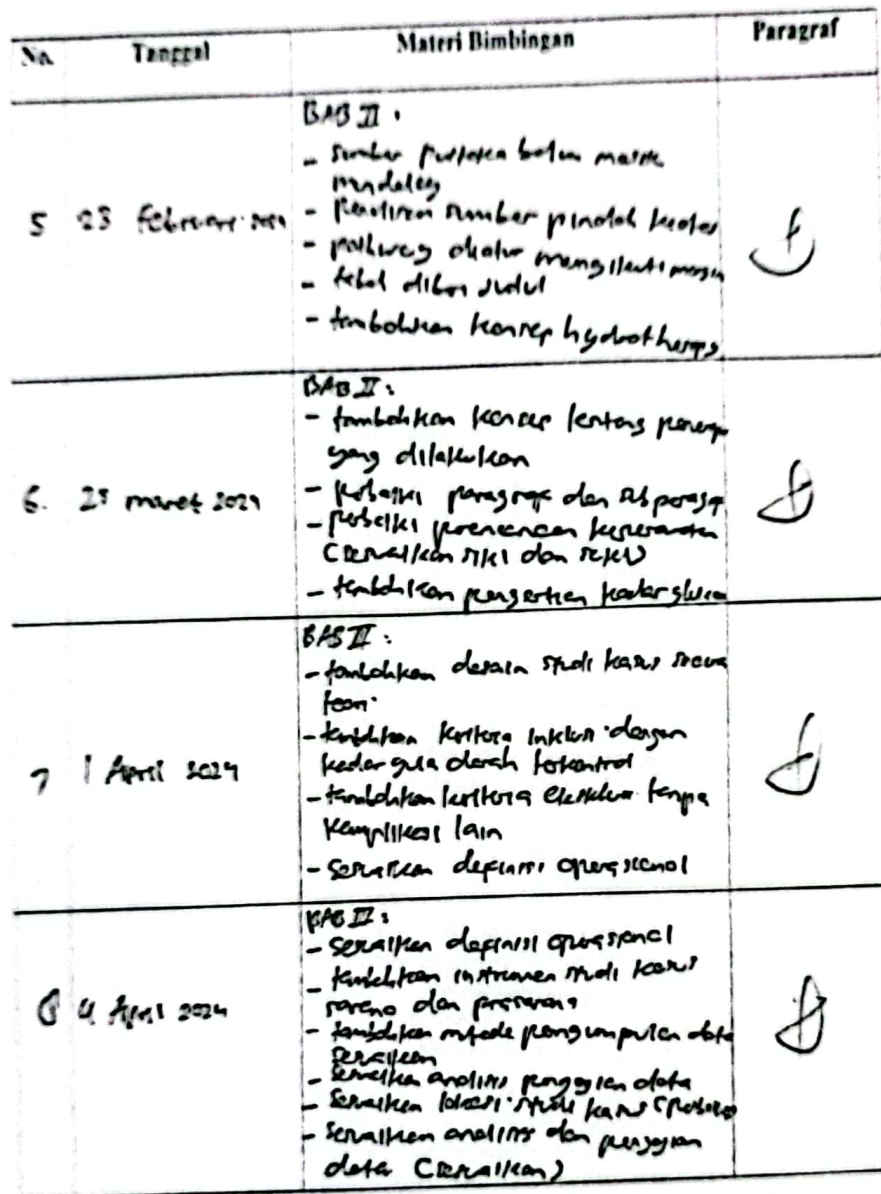 No. Tanggal Materi Bimbingan Paragraf
BAB II :
- Sumber pustaka belum masuk
mendeley
5 23 Februari 2024 - sumber pindah kertas
- pathway diatur mengikuti margin
- tabel diberi judul
- tambahkan konsep hydrotherapy
BAB II :
- tambahkan konsep tentang
yang dilakukan
6. maret 2024 - Perbaiki paragraf dan sub paragraf
- perbaiki perencanaan keperawatan
(sesuaikan dan
- tambahkan pengertian kadar glukosa
BAB III :
- tambahkan desain studi kasus secara
teori
7 1 April 2024 - tambahkan kriteria inklusi dengan
kadar gula darah terkontrol
- tambahkan kriteria eksklusi tanpa
komplikasi lain
- Sesuaikan definisi operasional
8 4 April 2024 - Sesuaikan definisi operasional
- tambahkan instrumen studi kasus
dan prasarana
- tambahkan metode pengumpulan data
sesuaikan
- Sesuaikan analisis penyajian data
- Sesuaikan lokasi studi kasus
- Sesuaikan analisis dan penyajian
data (sesuaikan)